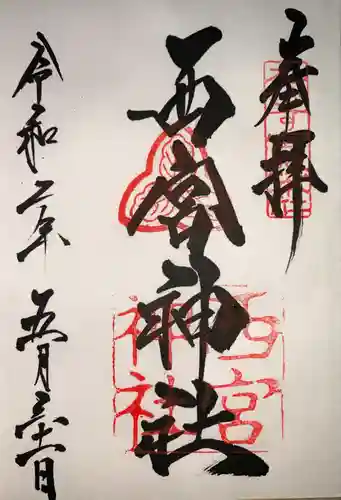 奉拝
西宮神社
西宮
神社
令和二年
五月三十一日